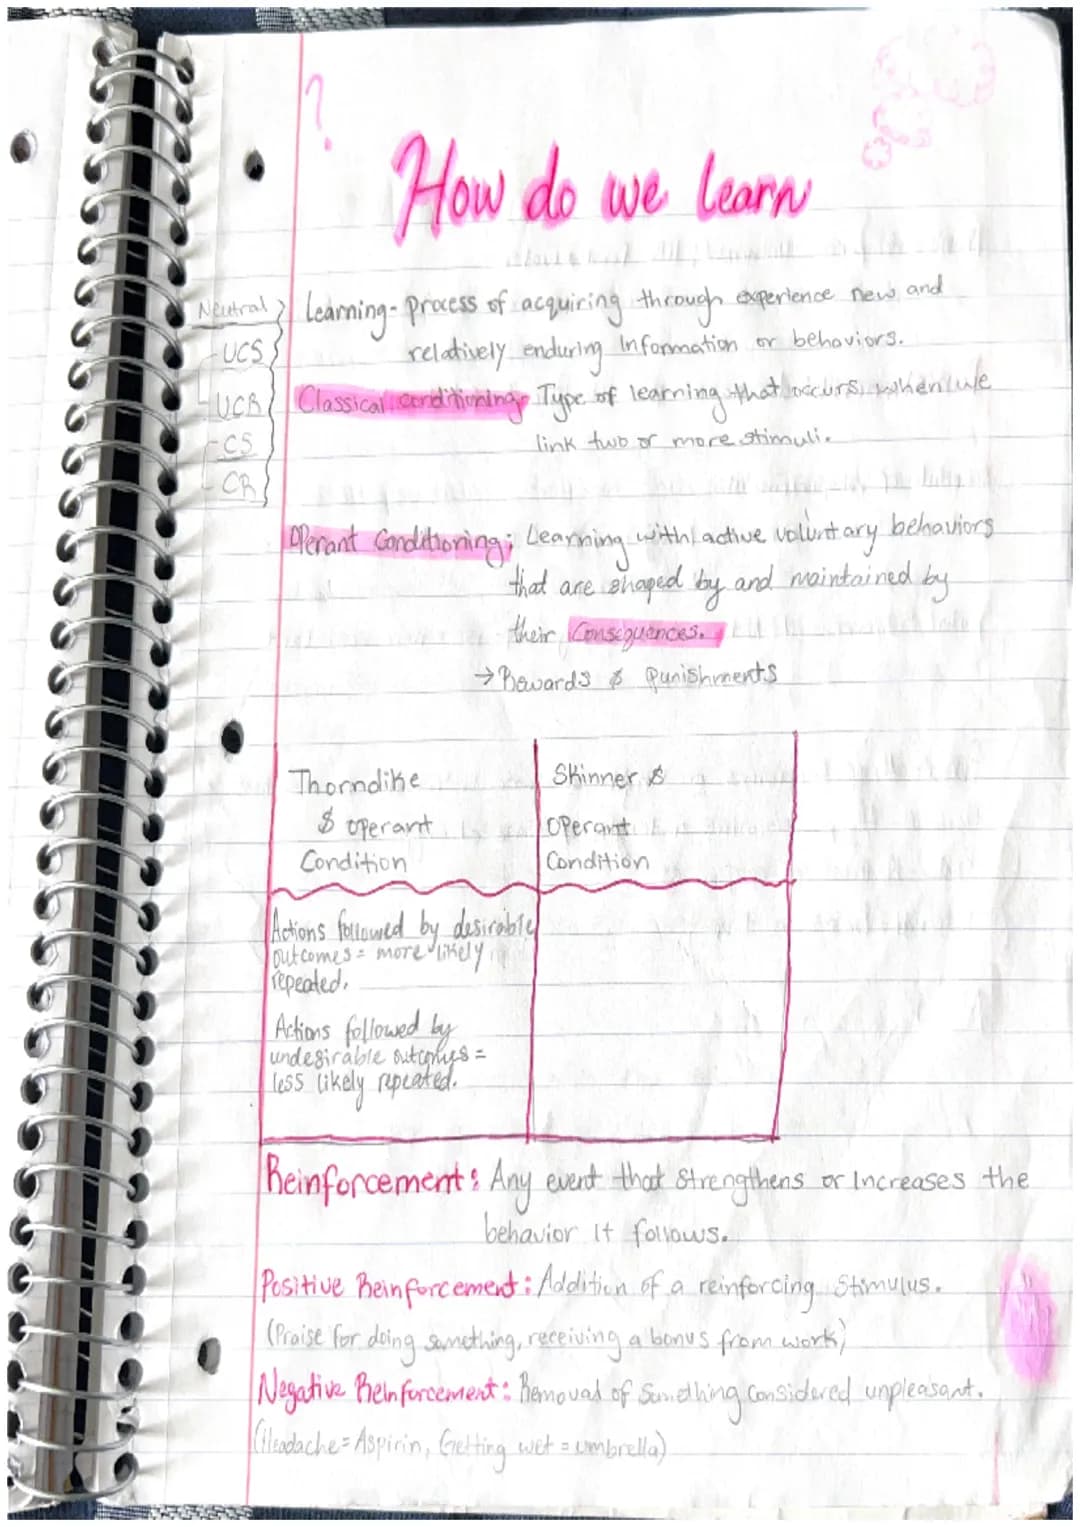 ?
How do we learn
Neutral
UCS
UCR
CS
CR
Learning- process of acquiring through experience new and
relatively enduring information or behaviors.
Classical conditioning- Type of learning that occurs when we
link two or more stimuli.
Operant Conditioning: Learning with active voluntary behaviors
that are shaped by and maintained by
their Consequences.
→ Rewards & Punishments
Thorndike
& operant
Condition
Skinner &
Operant
Condition
Actions followed by desirable
outcomes = more likely
repeated.
Actions followed by
undesirable outcomes =
less likely repeated.
Reinforcement: Any event that Strengthens or Increases the
behavior It follows.
Positive Reinforcement: Addition of a reinforcing Stimulus.
(Praise for doing something, receiving a bonus from work)
Negative Reinforcement: Removal of Something considered unpleasant.
(Headache = Aspirin, Getting wet = umbrella)